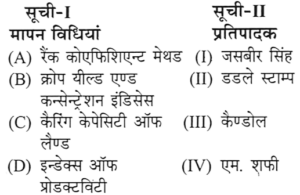 सूची-I सूची-II
मापन विधियां प्रतिपादक
(A) रैंक कोएफिशिएन्ट मेथड (I) जसबीर सिंह
(B) क्रोप यील्ड एण्ड (II) डडले स्टाम्प
कन्सेन्ट्रेशन इंडिसेस
(C) कैरिंग केपेसिटी ऑफ (III) कैण्डोल
लैण्ड
(D) इन्डेक्स ऑफ (IV) एम. शफी
प्रोडक्टविटी